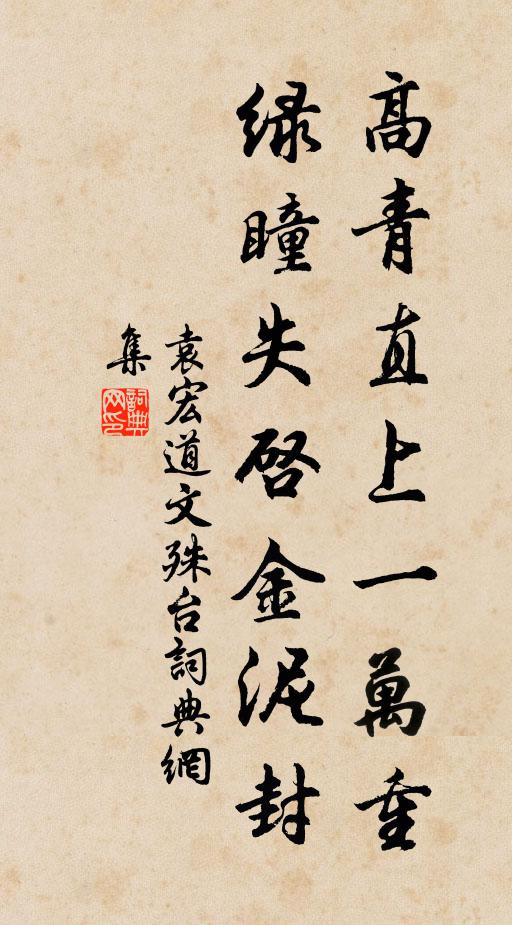 高青直上一萬重
绿瞳失啓金泥封
袁宏道文殊台詞典網
集
詞典
网印